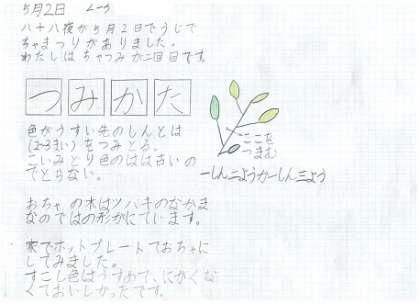 5月2日
八十八夜が5月2日でうじで
ちゃまつりがありました。
わたしはちゃつみが二回目です。
つみかた
色がうすい先のしんとは
(2~3まい)をつみとる。
こいみどり色のはは古いの
でとらない。
ここを
つまむ
一しん二ようか一しん三よう
おちゃの木はツバキのなかま
なのではの形がにています。
家でホットプレートでおちゃに
してみました。
すこし色はうすめで、にがくな
くておいしかったです。